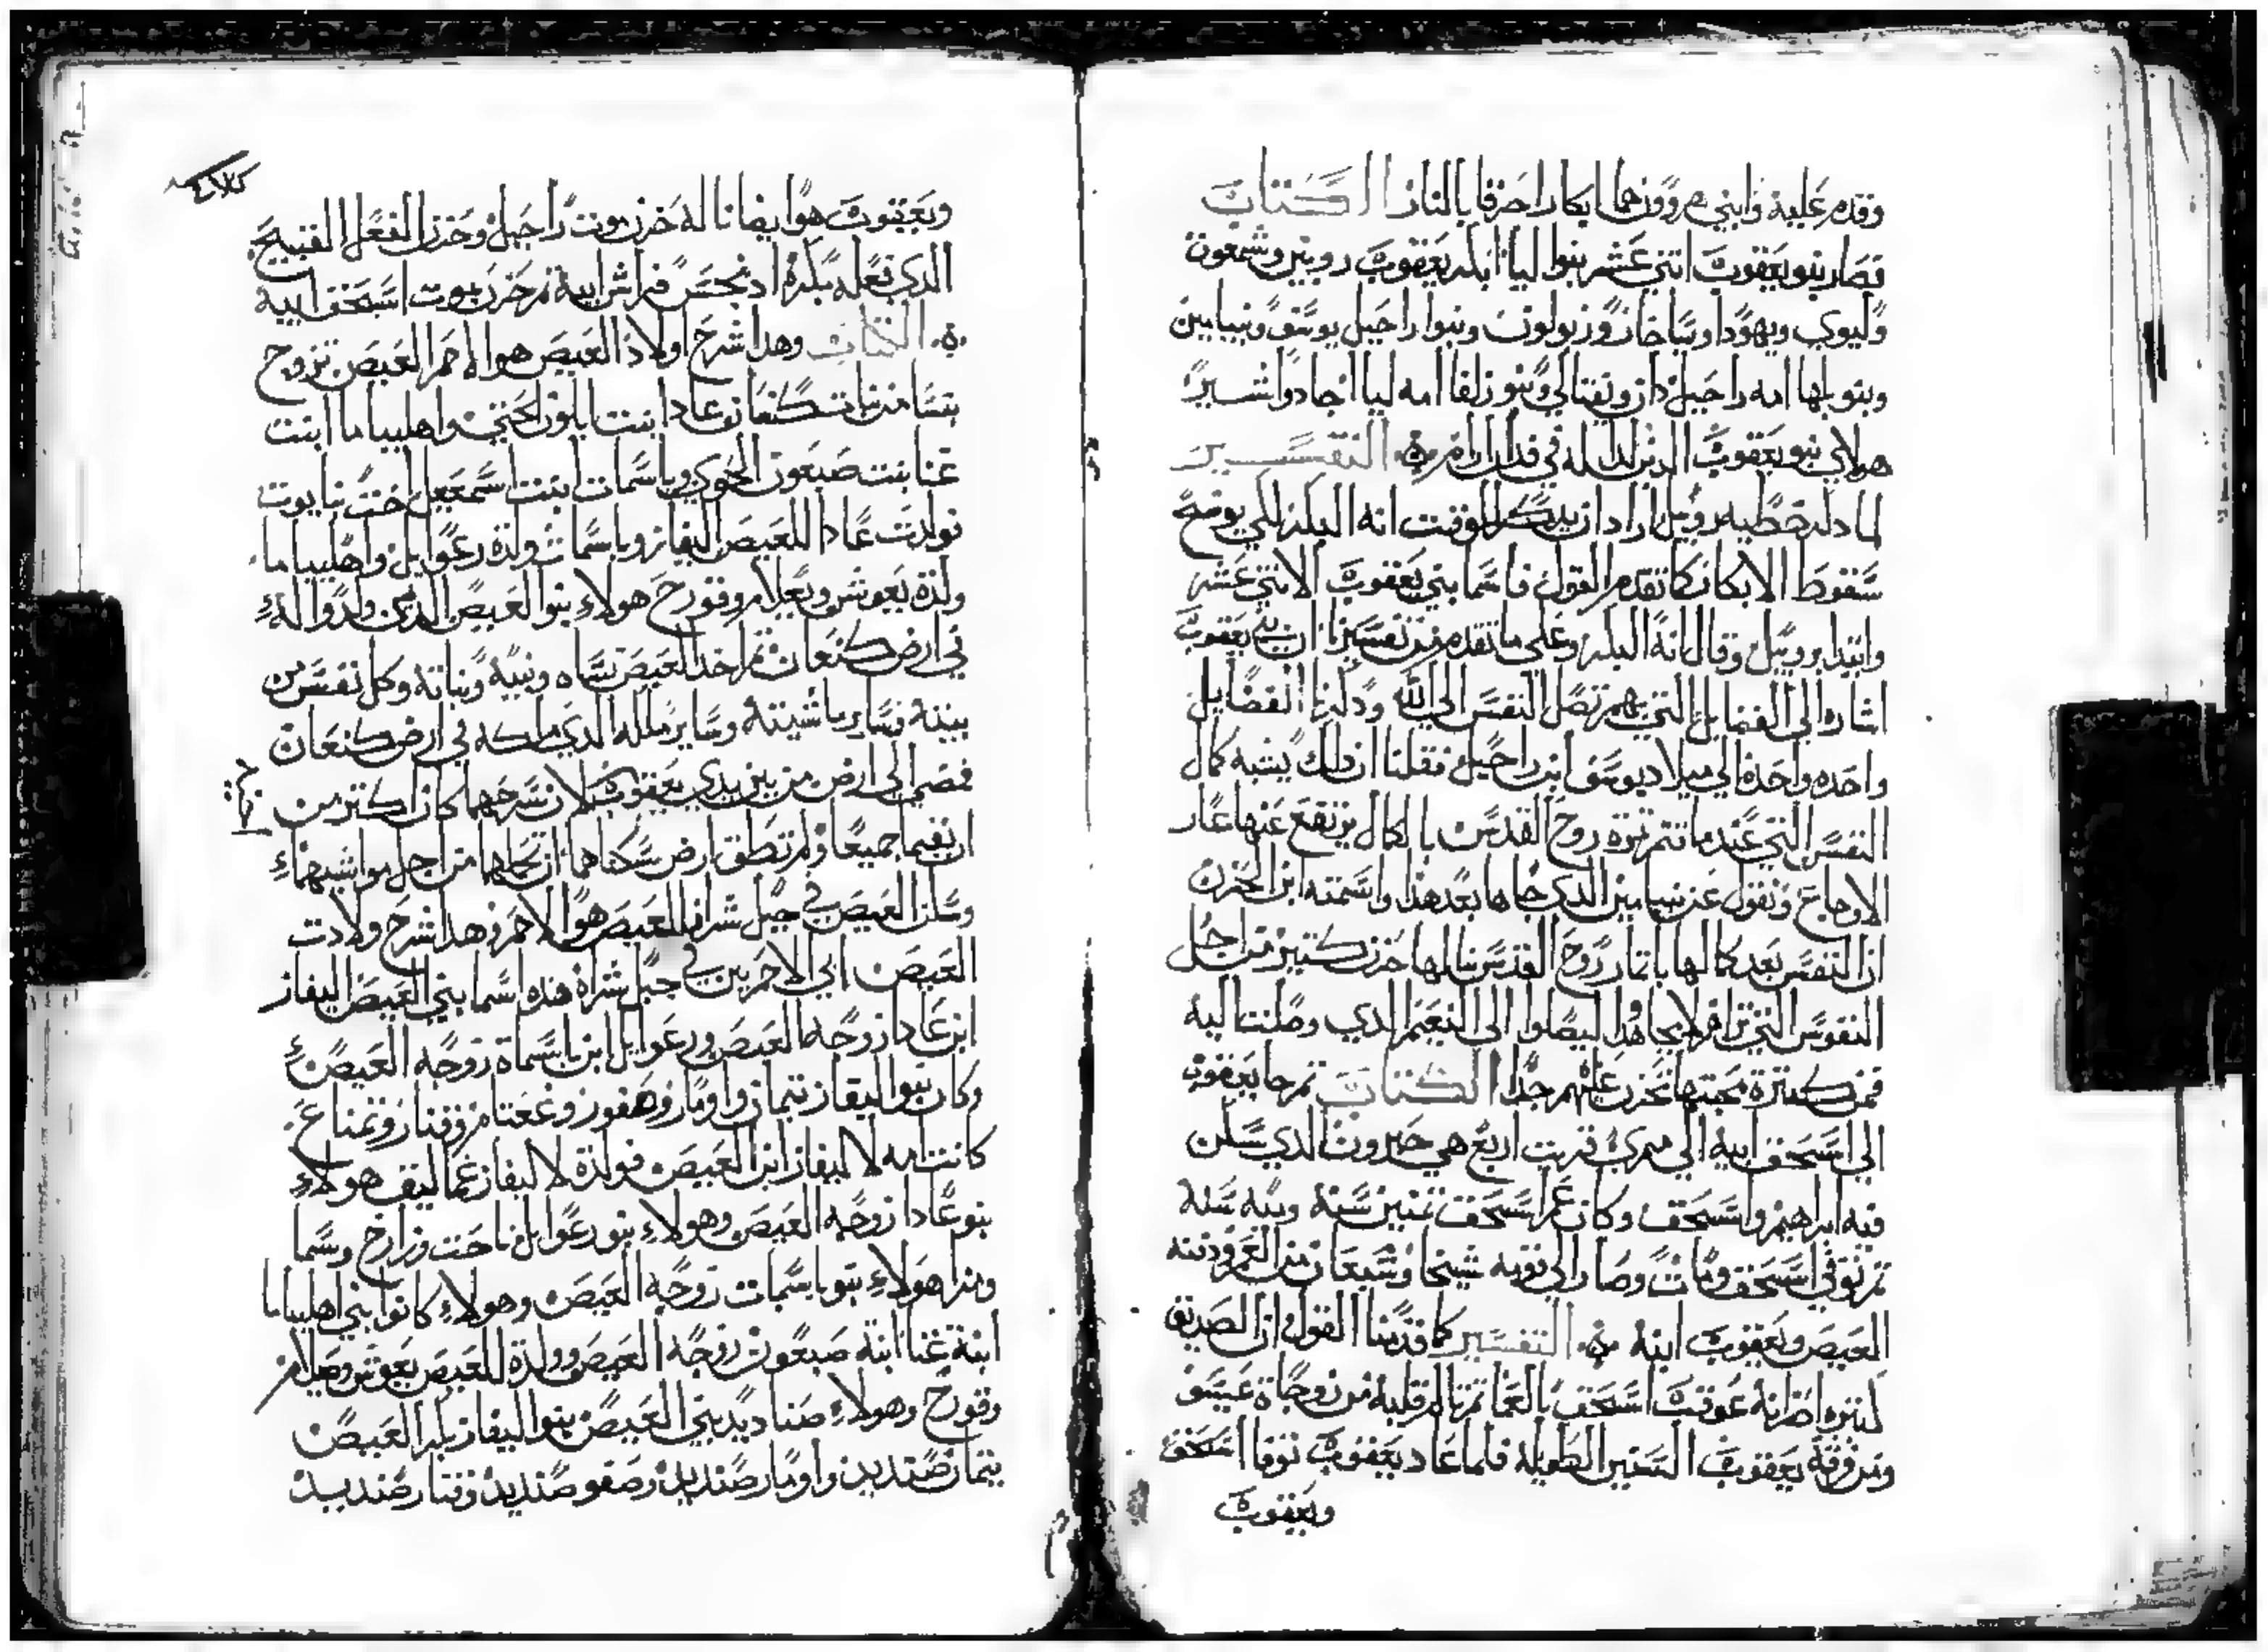 وقدم عليه وابني هرون هما ابكارا احرقا بالنار الكتاب
فصار بنو يعقوب اتني عشر بنوا ليا ابكر يعقوب روبيل وشمعون
وليوي ويهودا ويساخار وزبولون وبنوا راحيل يوسف وبنيامين
وبنو بلها امه راحيل دان ونفتالي وبنو زلفا امه ليا اجاد واشير
هولاي بنو يعقوب الدين لدا له في فدان ارام التفسير
لما دكر خطيه روبيل اراد ان يدكر الوقت انه البكر لكي يوضح
سقوط الابكار كما تقدم القول فاسما بني يعقوب الاتني عشر
وابتدا بروبيل وقال انه البكر وعلي ما تقدم من تفسيرنا ان بني يعقوب
اشاره الي الفضايل التي بهم تصل النفس الي الله ودكرنا الفضايل
واحده واحده الي ميلاد يوسف ابن راحيل فقلنا ان دلك يشبه كمال
النفس التي عندما تتم تمره روح القدس بالكمال يرتفع عنها عار
الاوجاع ونقول عن بنيامين الدي جاها بعد هدا واسمته ابن الحزن
ان النفس بعد كمالها باتمار روح القدس ينالها حزن كتير من اجل
النفوس التي تراهم لا يجاهدوا ليصلوا الي النعيم الدي وصلت اليه
فمن كترة محبتها تحزن عليهم جدا الكتاب تم جا يعقوب
الي اسحق ابيه الي ممري قريت اربع هي حبرون الدي سكن
فيه ابراهيم واسحق وكان عمر اسحق تمنين سنة وميه سنه
تم توفي اسحق ومات وصار الي قومه شيخا وشبعان من العمر ودفنه
العيص ويعقوب ابنيه التفسير كما قدمنا القول ان الصديق
لكتره احزانه عوقب اسحق بالعما تم تالم قلبه من زوجاة عيسو
ومن فرقة يعقوب السنين الطويله فلما عاد يعقوب توفا اسحق
ويعقوب
ويعقوب هوا ايضا ناله حزن موت راحيل وحزن الفعل القبيح
الدي فعله بكره اد نجس فراش ابيه تم حزن بموت اسحق ابيه
الكتاب وهدا شرح اولاد العيص هوا احمر العيص تزوج
بنسا من بنات كنعان عادا ابنت ايلون الحتي واهليباما ابنت
عنا بنت صبعون الحوي وباسمات ابنت اسمعيل اخت نبايوت
فولدت عادا للعيص اليفاز وباسمات ولدة رعوايل واهليباما
ولدة يعوش ويعلام وقورح هولاء بنوا العيص الدين ولدوا له
في ارض كنعان تم اخد العيص نساه وبنيه وبناته وكل نفس من
بيته وساير ماشيته وساير ملكه الدي ملكه في ارض كنعان
فمضي الي ارض من بين يدي يعقوب لان سرحهما كان اكتر من
ان يقيما جميعا ولم تطق ارض سكناهما ان تحملهما من اجل مواشيهما
وسكن العيص في جبل شراه العيص هوا الاحمر وهدا شرح ولادت
العيص ابي الاحمريين في جبل شراه هده اسما بني العيص اليفاز
ابن عادا زوجه العيص ورعوايل ابن باسماة زوجه العيص
وكان بنوا اليفاز تيمان واومار وصفو وغعتام وقناز وتمناع
كانت امه لاليفاز ابن العيص فولدة لاليفاز عماليق هولاء
بنو عادا زوجه العيص وهولاء بنو رعوايل ناحت وزارح وسما
ومزا هولاء بنو باسمات زوجه العيص وهولاء كانوا بني اهليباما
ابنة عنا ابنة صبعون زوجه العيص وولدة للعيص يعوش ويعلام
وقورح وهولاء صناديد بني العيص بنوا اليفاز بكر العيص
تيمان صنديد واومار صنديد وصفو صنديد وقناز صنديد